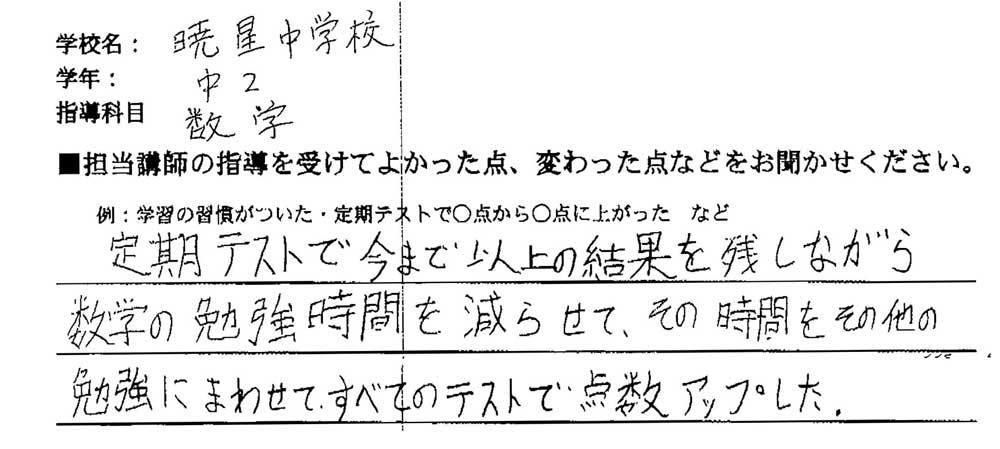 学校名： 暁星中学校
学年： 中2
指導科目 数学
■担当講師の指導を受けてよかった点、変わった点などをお聞かせください。
例：学習の習慣がついた・定期テストで〇点から〇点に上がった など
定期テストで今まで以上の結果を残しながら
数学の勉強時間を減らせて、その時間をその他の
勉強にまわせて、すべてのテストで点数アップした.